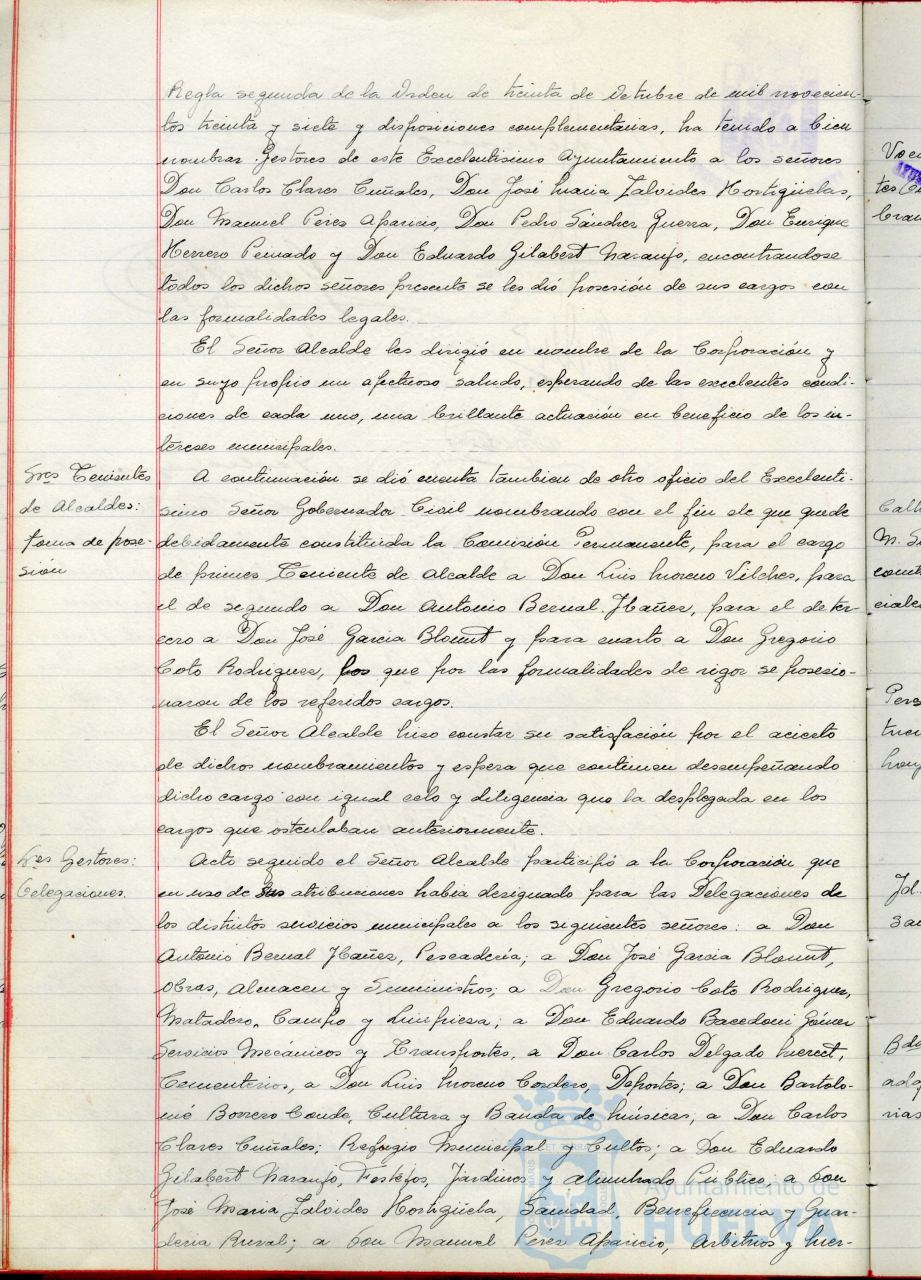 Regla segunda de la Orden de treinta de Octubre de mil novecien-
tos treinta y siete y disposiciones complementarias, ha tenido a bien
nombrar Gestores de este Excelentisimo Ayuntamiento a los señores
Don Carlos Clares Cuñales, Don José Maria Zalvides Hortigüelas,
Don Manuel Péres Aparicio, Don Pedro Sánches Guerra, Don Enrique
Herrero Peinado y Don Eduardo Gilabert Naranjo, encontrandose
todos los dichos señores presente se les dió posesión de sus cargos con
las formalidades legales.
El Señor Alcalde les dirigió en nombre de la Corporación y
en suyo propio un afectuoso saludo, esperando de las excelentes condi-
ciones de cada uno, una brillante actuación en beneficio de los in-
tereses municipales.
Sres Tenientes
de Alcaldes:
toma de pose-
sion
A continuación se dió cuenta tambien de otro oficio del Excelenti-
simo Señor Gobernador Civil nombrando con el fin de que quede
debidamente constituida la Comisión Permanente, para el cargo
de primer Teniente de Alcalde a Don Luis Moreno Vilches, para
el de segundo a Don Antonio Bernal Ibañes, para el de ter-
cero a Don José Garcia Blount y para cuarto a Don Gregorio
Coto Rodrigues, los que por las formalidades de rigor se posesio-
naron de los referidos cargos.
El Señor Alcalde hiso constar su satisfacción por el acierto
de dichos nombramientos y espera que continuen desempeñando
dicho cargo con igual celo y diligencia que la desplegada en los
cargos que ostentaban anteriormente.
Sres Gestores:
Delegaciones.
Acto seguido el Señor Alcalde participó a la Corporación que
en uso de sus atribuciones habia designado para las Delegaciones de
los distintos servicios municipales a los siguientes señores: a Don
Antonio Bernal Ibañes, Pescaderia; a Don José Garcia Blount,
Obras, Almacen y Suministros; a Don Gregorio Coto Rodrigues,
Matadero, Campo y Limpiesa; a Don Eduardo Bacedoni Gómes
Servicios Mecánicos y Transportes, a Don Carlos Delgado
Cementerios, a Don Luis Moreno Cordero, Deportes; a Don Bartolo-
mé Borrero Conde, Cultura y Banda de músicas, a Don Carlos
Clares Cuñales; Refugio Municipal y Cultos; a Don Eduardo
Gilabert Naranjo, Festejos, Jardines y alumbrado Publico, a Don
José Maria Zalvides Hortigüela, Sanidad, Beneficencia y Guar-
deria Rural; a Don Manuel Péres Aparicio, Arbitrios y
Ayuntamiento de
HUELVA